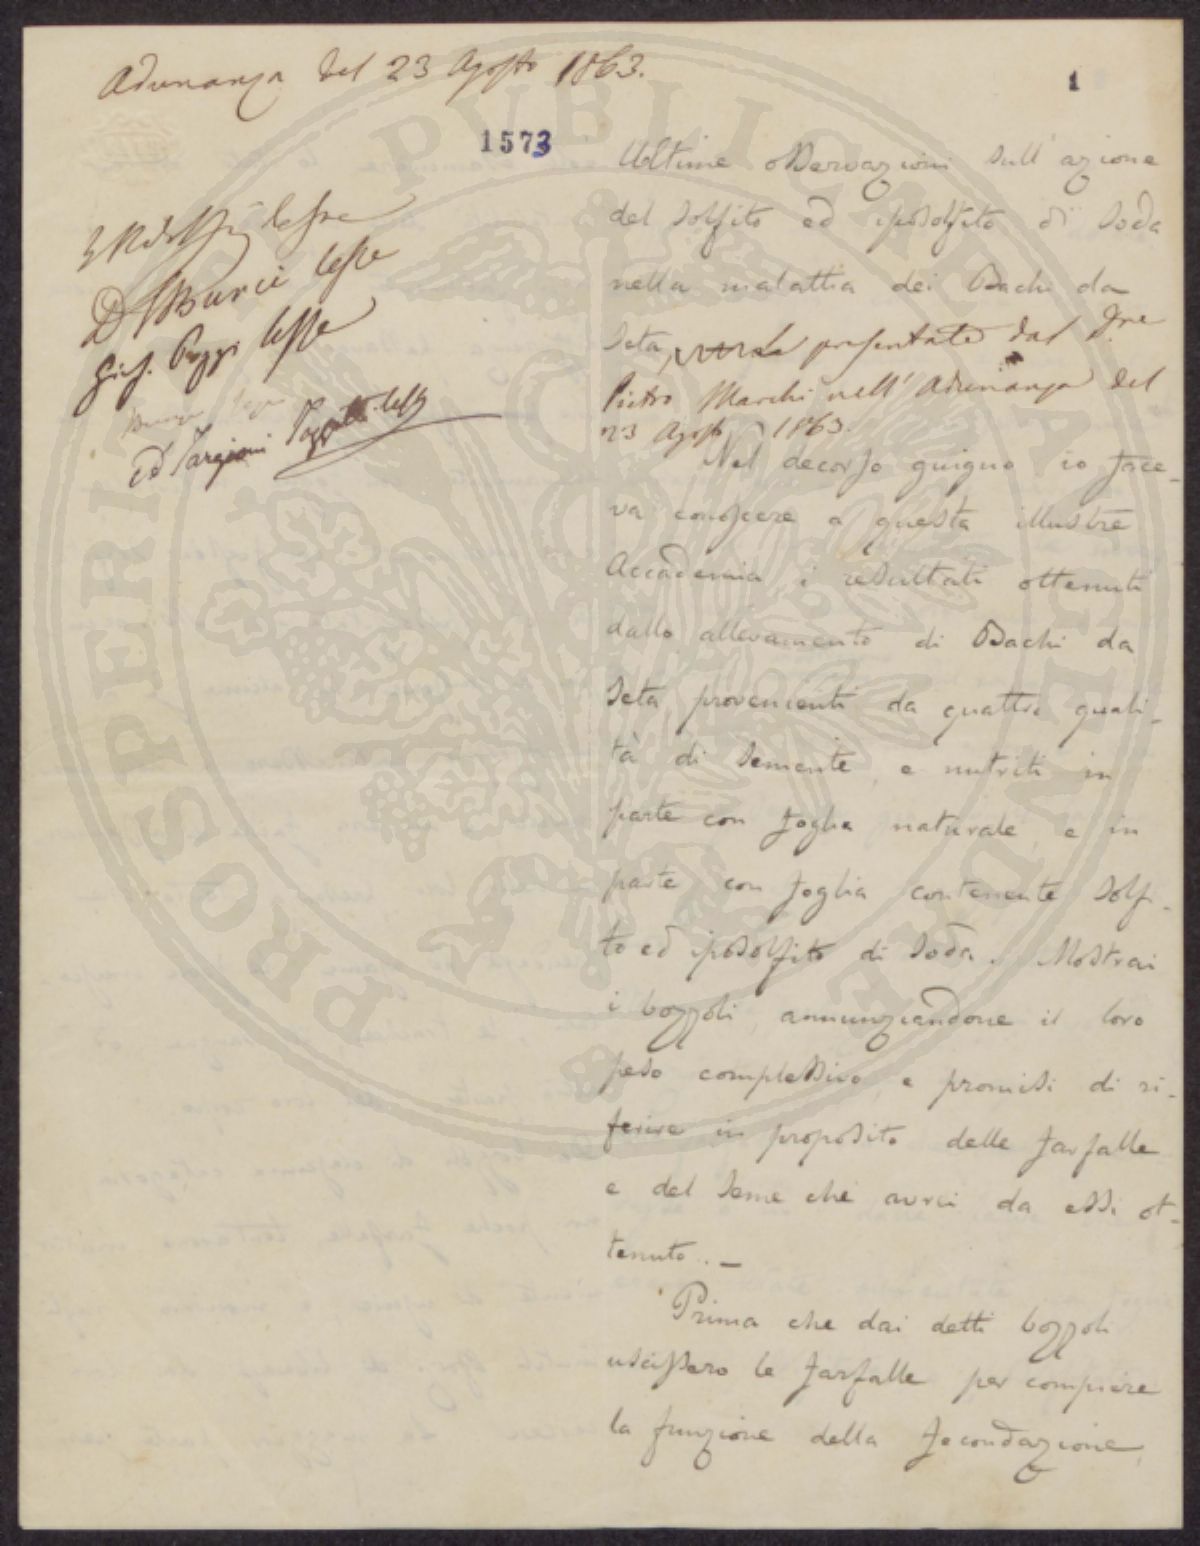 Adunanza del 23 Agosto 1863.
1
1573
Ultime osservazioni sull'azione
del solfito ed iposolfito di Soda
nella malattia dei Bachi da
Seta, presentate dal Dre
Pietro Marchi nell'Adunanza del
23 Agosto 1863.
lesse
D Burci lesse
Gius. Poggi lesse
Ed Targioni Tozzetti lesse
Nel decorso guigno io face-
va conoscere a questa illustre
Accademia i resultati ottenuti
dallo allevamento di Bachi da
Seta provenienti da quattro quali-
tà di Semente, e nutriti in
parte con foglia naturale, e in
parte con foglia contenente Solfi-
to ed iposolfito di Soda. Mostrai
i bozzoli, annunziandone il loro
peso complessivo, e promisi di ri-
ferire in proposito delle farfalle
e del Seme che avrei da essi ot-
tenuto. _
Prima che dai detti bozzoli
uscissero le farfalle per compiere
la funzione della fecondazione,
PROSPERITATI PUBLICAE AUGENDAE